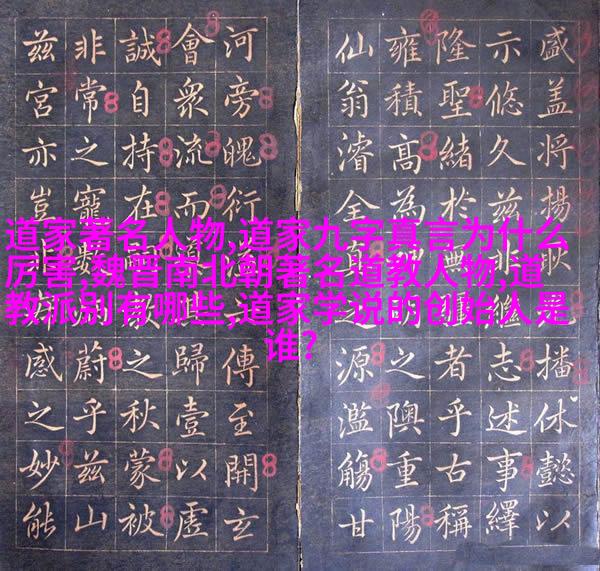 道家著名人物,道家九字真言为什么
厉害,魏晋南北朝著名道教人物,道
教派别有哪些,道家学说的创始人是
谁?
盛盖将揚播休懿以
示悠久兹非志述事繹
隆聖緒於無者乎古稱
雍積高為之隩重陽
仙翁濬全真源濫觴甘
河旁魄衍傳至開玄
會衆流而歸壹以虛
誠自持在之秋蒙被
非常之寵蔚乎兹山
兹宮亦豈感之妙能